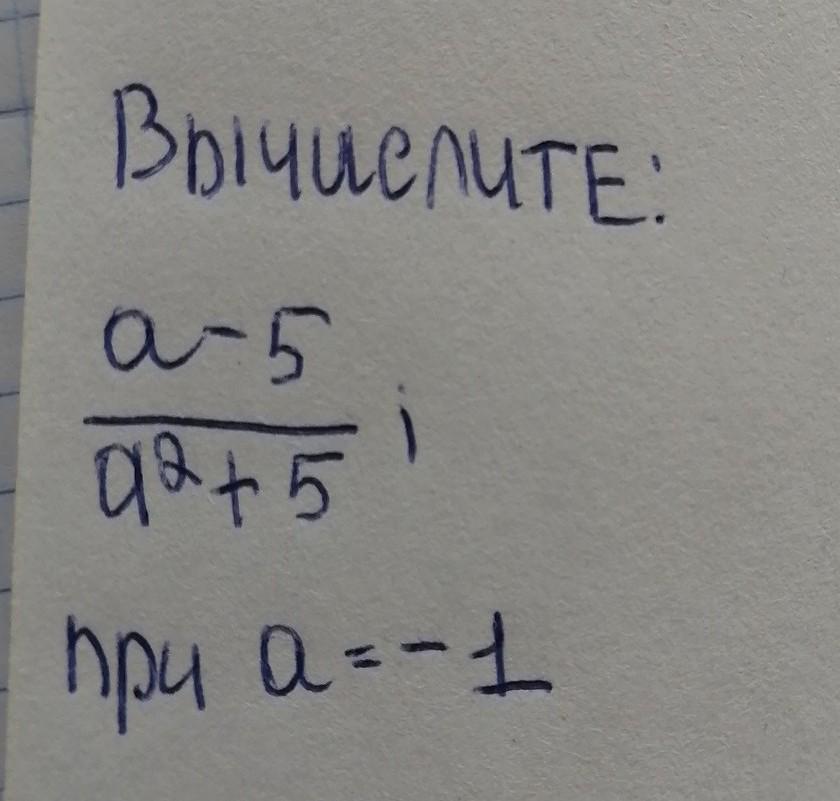 Вычислите:
a-5
a²+5 ;
при a=-1